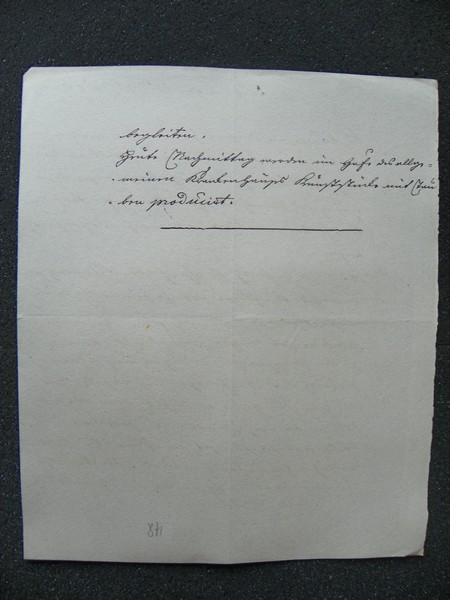 begleiten.
Heute Nachmittag werden im Hofe des allge-
meinen Krankenhauses Kunststücke mit Tau
ben producirt.
871